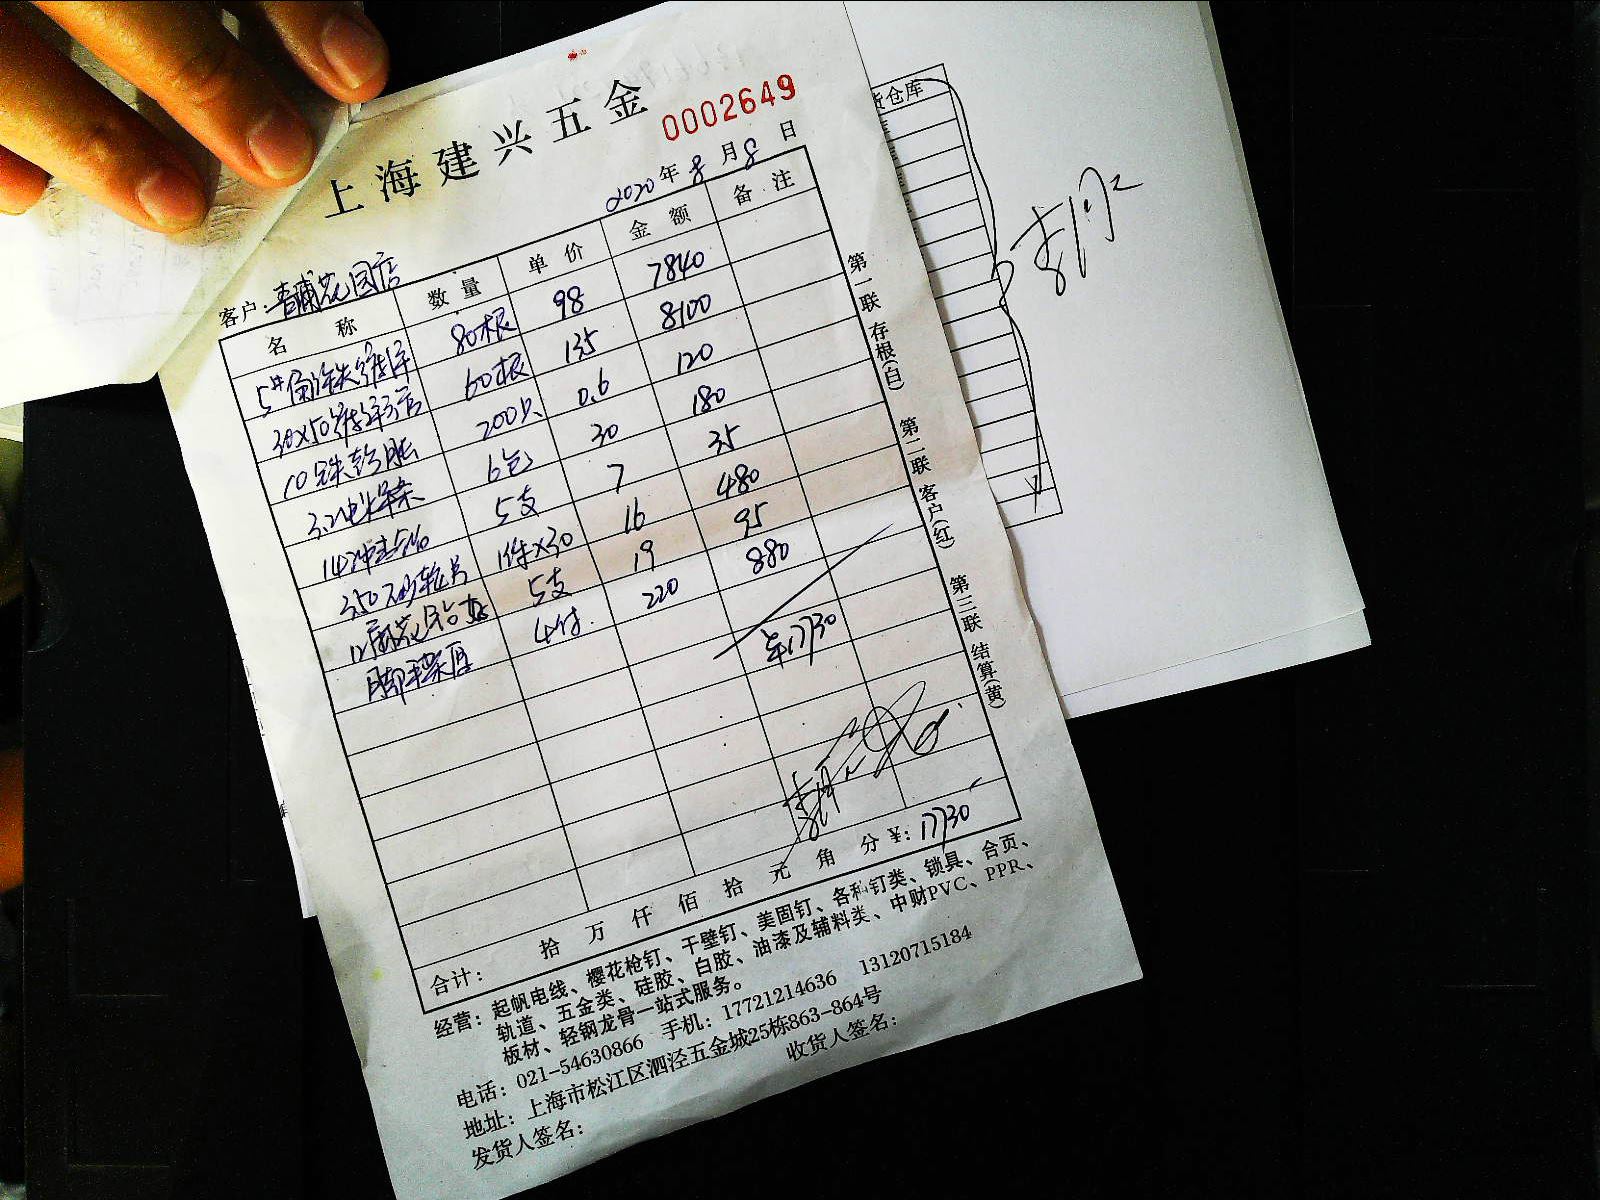 上海建兴五金
0002649
2020年8月8日
客户:青浦花园店
名 称 数 量 单 价 金 额 备 注
5#角铁 80根 98 7840
30×50 60根 135 8100
10 200只 0.6 120
3.2电焊条 6包 30 180
14冲击 5支 7 35
350砂轮片 1件×30 16 480
12 5支 19 95
脚手架 4付 220 880
17730
合计: 拾 万 仟 佰 拾 元 角 分 ¥:17730
第一联 存根(白) 第二联 客户(红) 第三联 结算(黄)
经营:起帆电线、樱花枪钉、干壁钉、美固钉、各种钉类、锁具、合页、
轨道、五金类、硅胶、白胶、油漆及辅料类、中财PVC、PPR、
板材、轻钢龙骨一站式服务。
电话:021-54630866 手机:17721214636 13120715184
地址:上海市松江区泗泾五金城25栋863-864号
发货人签名: 收货人签名:
货仓库